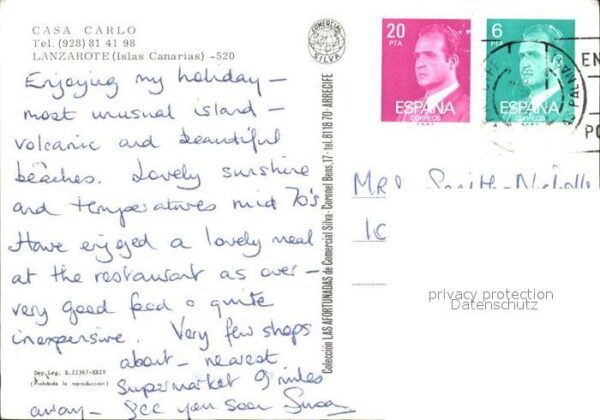 CASA CARLO
Tel. (928) 81 41 98
LANZAROTE (Islas Canarias) -520
Enjoying my holiday -
most unusual island -
volcanic and beautiful
beaches. Lovely sunshine
and temperatures mid 70's
Have enjoyed a lovely meal
at the restaurant as over -
very good food & quite
inexpensive. Very few shops
about - nearest
supermarket 9 miles
away - See you soon Susan
Dep. Leg. B. 22367-XXIV
(Prohibida la reproducción)
COMERCIAL SILVA
Colección LAS AFORTUNADAS de Comercial Silva - Coronel Bens, 17 - tel. 81 18 70 - ARRECIFE
20 PTA
ESPAÑA
CORREOS
6 PTA
ESPAÑA
CORREOS
EN
PO
Mrs Smith-Nicholls
privacy protection
Datenschutz